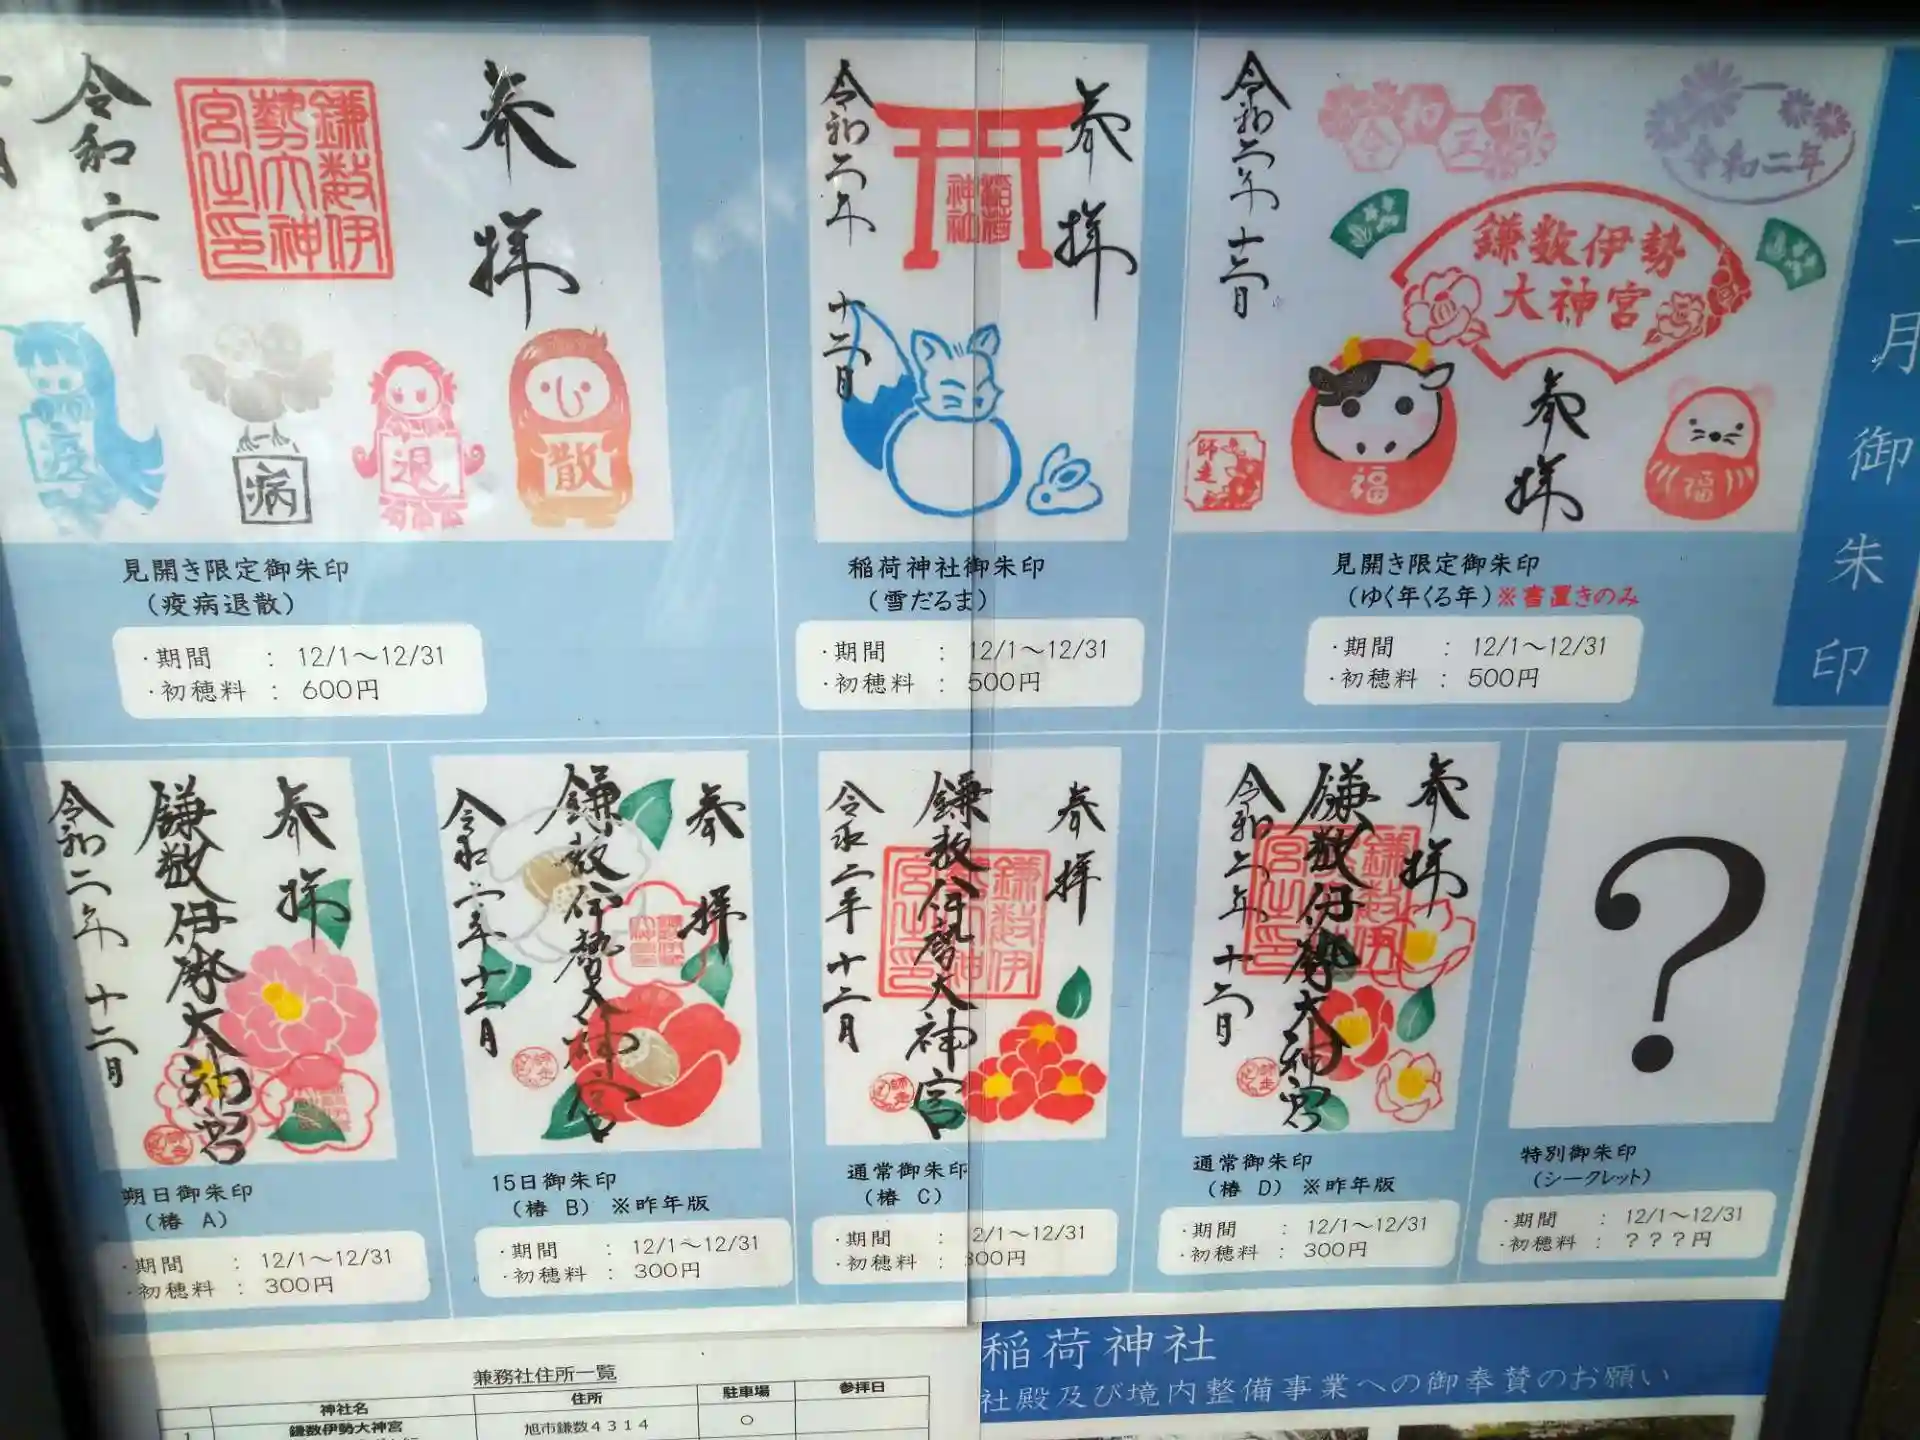 十二月御朱印
奉拝
鎌数伊勢大神宮之印
令和二年
疫
病
退
散
見開き限定御朱印
(疫病退散)
・期間 : 12/1～12/31
・初穂料 : 600円
奉拝
稲荷神社
令和二年
十二月
稲荷神社御朱印
(雪だるま)
・期間 : 12/1～12/31
・初穂料 : 500円
令和三年
令和二年
鎌数伊勢
大神宮
奉拝
令和二年 十二月
師走
福
福
見開き限定御朱印
(ゆく年くる年)※書置きのみ
・期間 : 12/1～12/31
・初穂料 : 500円
奉拝
鎌数伊勢大神宮
令和二年 十二月
朔日御朱印
(椿 A)
・期間 : 12/1～12/31
・初穂料 : 300円
奉拝
鎌数伊勢大神宮
令和二年十二月
師走
15日御朱印
(椿 B) ※昨年版
・期間 : 12/1～12/31
・初穂料 : 300円
奉拝
鎌数伊勢大神宮
鎌数伊勢大神宮之印
令和二年十二月
師走
通常御朱印
(椿 C)
・期間 : 12/1～12/31
・初穂料 : 300円
奉拝
鎌数伊勢大神宮
鎌数伊勢大神宮之印
令和二年 十二月
師走
通常御朱印
(椿 D) ※昨年版
・期間 : 12/1～12/31
・初穂料 : 300円
?
特別御朱印
(シークレット)
・期間 : 12/1～12/31
・初穂料 : ???円
兼務社住所一覧
神社名 住所 駐車場 参拝日
1 鎌数伊勢大神宮 旭市鎌数4314 ○
稲荷神社
社殿及び境内整備事業への御奉賛のお願い